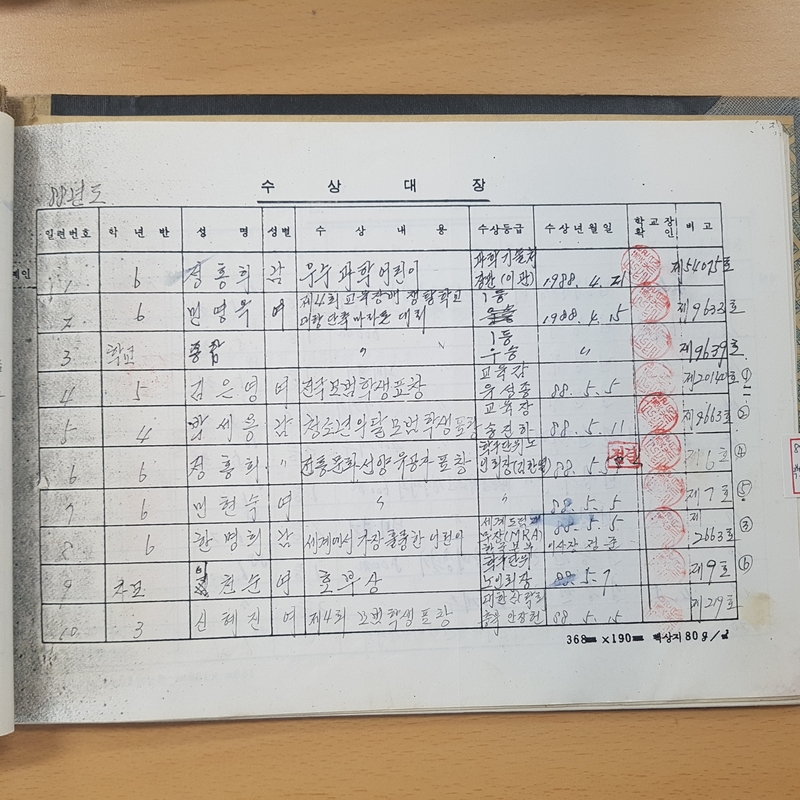 88년도
수 상 대 장
일련번호 학년반 성명 성별 수상내용 수상등급 수상년월일 학교장 확인 비고
1 6 정홍희 남 우수 과학어린이 과학기술처 장관 1988. 4. 21 제54075호
2 6 민영옥 여 제4회 교육장배 쟁탈학교 대항 단축마라톤 대회 1등 1988. 4. 15 제9633호
3 학교 종합 〃 1등 우승 〃 제9639호
4 5 김은영 여 전국모범학생표창 교육감 유성종 88. 5. 5 ①
5 4 박세웅 남 청소년의달 모범학생표창 교육장 88. 5. 11 제9663호 ②
6 6 정홍희 〃 전통문화선양유공자표창 88. 5. 제6호 ④
7 6 민현숙 여 〃 〃 88. 5. 5 제7호 ⑤
8 6 한명희 남 세계에서 가장 훌륭한 어린이 세계도덕 (MRA) 88. 5. 5 이사장 제2663호 ③
9 천순 여 효부상 노인회장 88. 5. 7. 제9호 ⑥
10 3 신혜진 여 제4회 모범학생표창 88. 5. 15 제219호
368㎜ ×190㎜ 백상지 80g/㎡